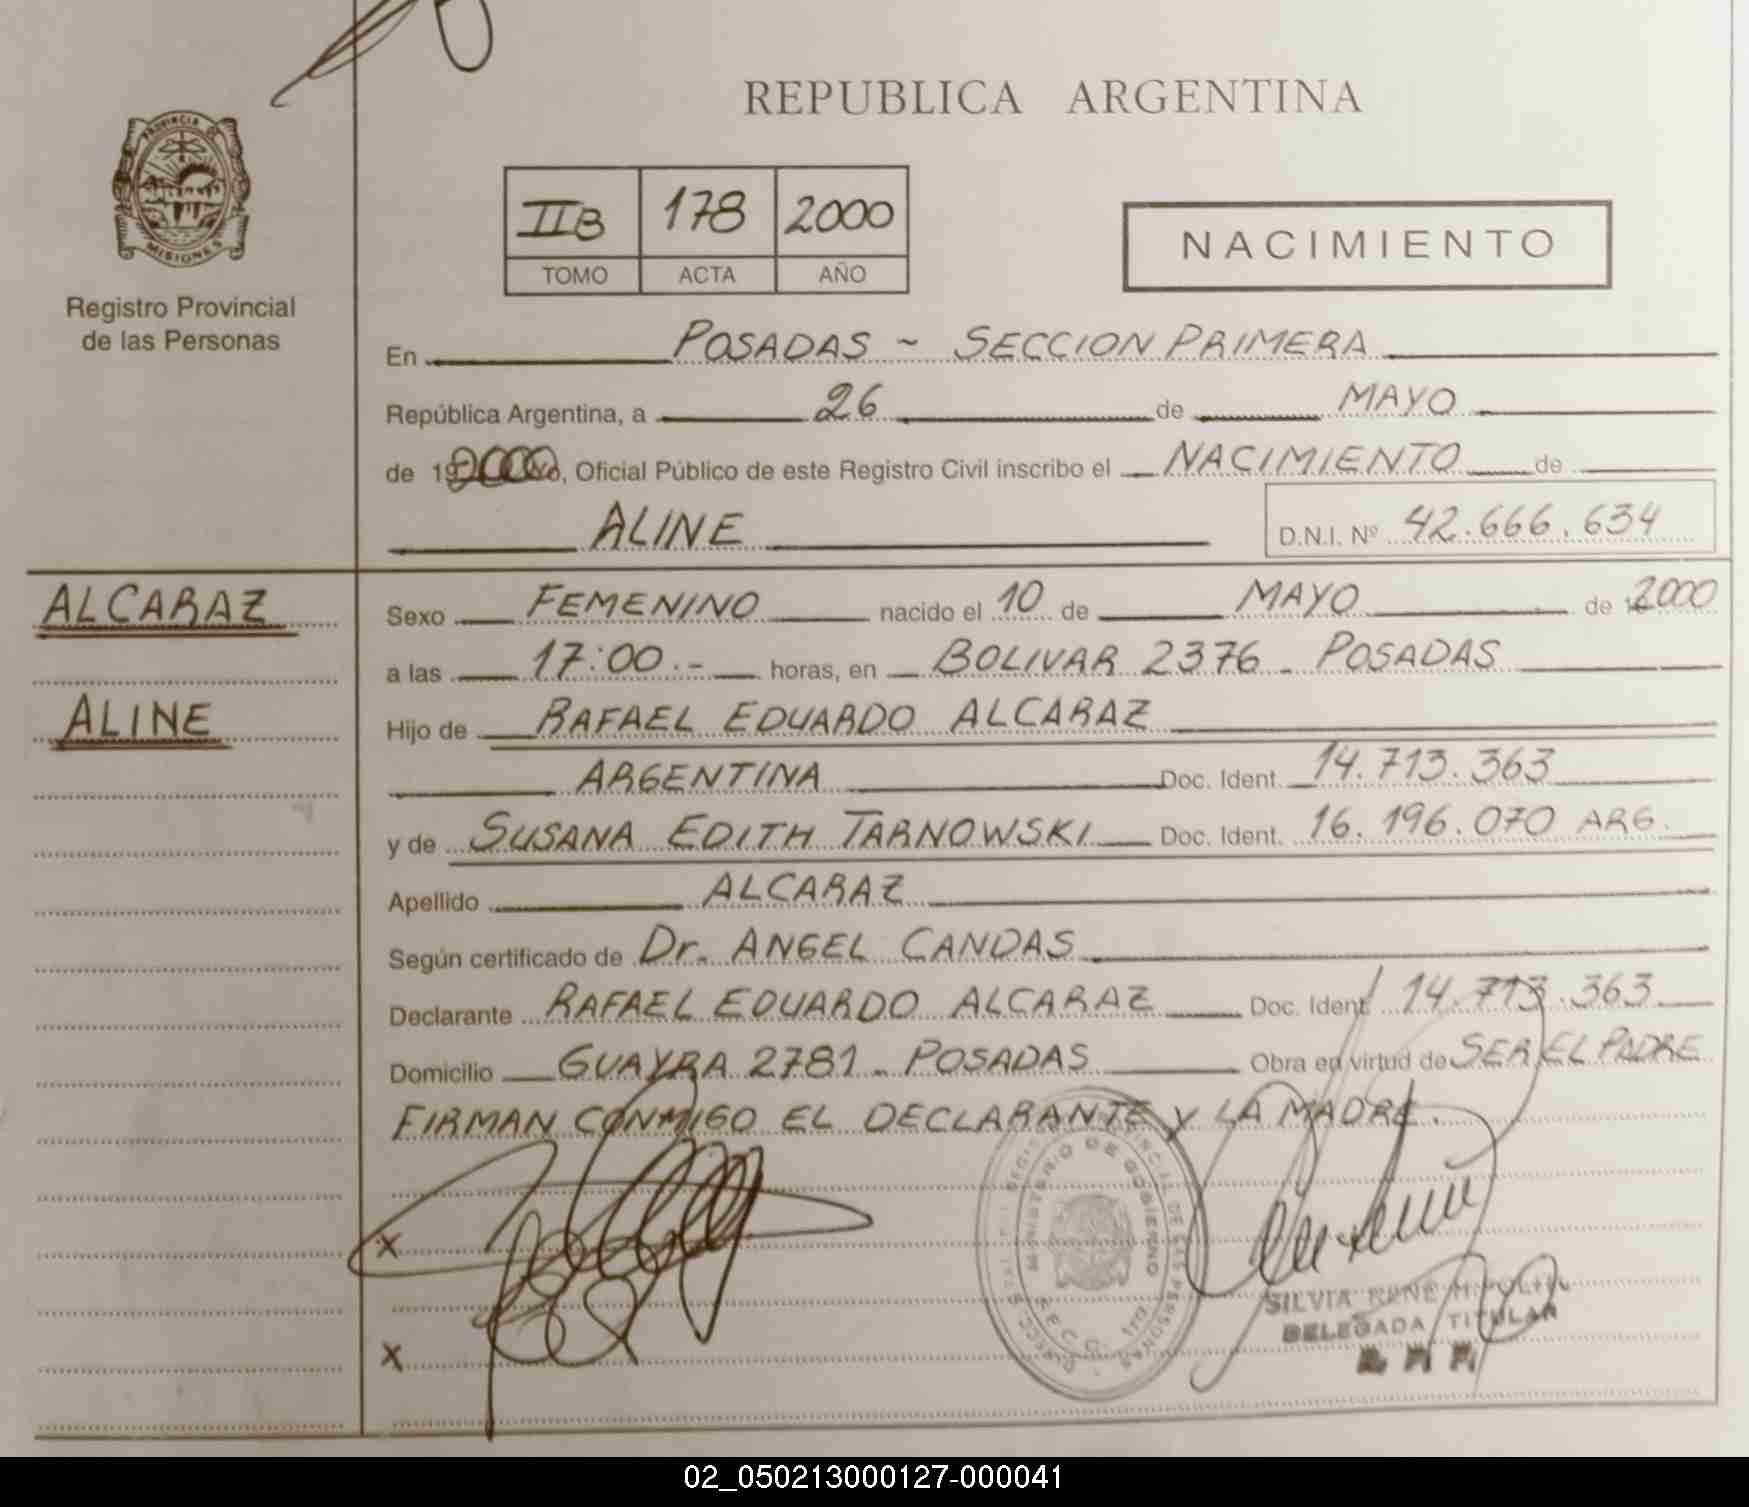 REPUBLICA ARGENTINA
PROVINCIA DE
MISIONES
Registro Provincial
de las Personas
IIB 178 2000
TOMO ACTA AÑO
NACIMIENTO
En POSADAS - SECCION PRIMERA
República Argentina, a 26 de MAYO
de 19 2000 Yo, Oficial Público de este Registro Civil inscribo el NACIMIENTO de
ALINE
D.N.I. Nº 42.666.634
ALCARAZ
ALINE
Sexo FEMENINO nacido el 10 de MAYO de 2000
a las 17:00.- horas, en BOLIVAR 2376 - POSADAS
Hijo de RAFAEL EDUARDO ALCARAZ
ARGENTINA Doc. Ident. 14.713.363
y de SUSANA EDITH TARNOWSKI Doc. Ident. 16.196.070 ARG.
Apellido ALCARAZ
Según certificado de Dr. ANGEL CANDAS
Declarante RAFAEL EDUARDO ALCARAZ Doc. Ident. 14.713.363
Domicilio GUAYRA 2781 - POSADAS Obra en virtud de SER EL PADRE
FIRMAN CONMIGO EL DECLARANTE Y LA MADRE.
MINISTERIO DE GOBIERNO
X
X
SILVIA RENE
DELEGADA TITULAR
02_050213000127-000041